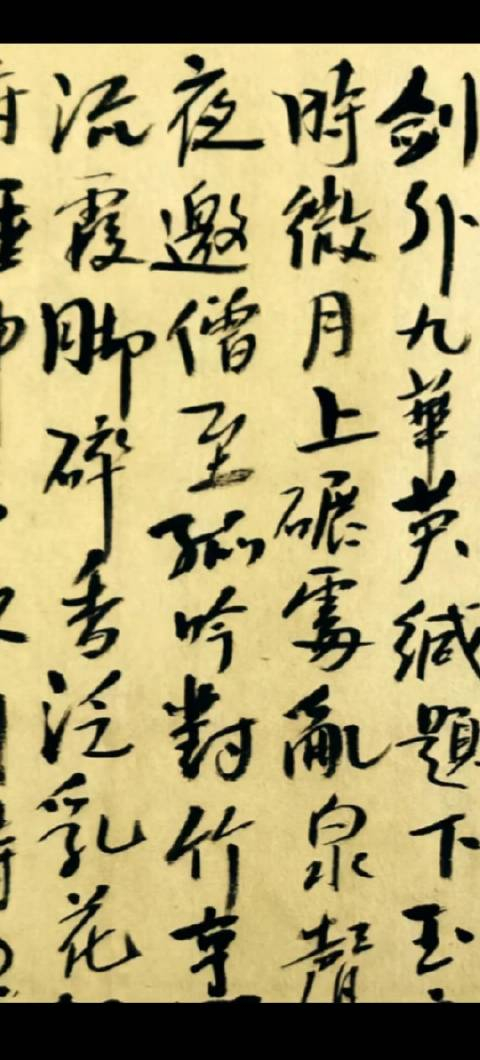 劍外九華英緘題下玉
時微月上碾處亂泉聲
夜邀僧至孤吟對竹烹
流霞脚碎香泛乳花